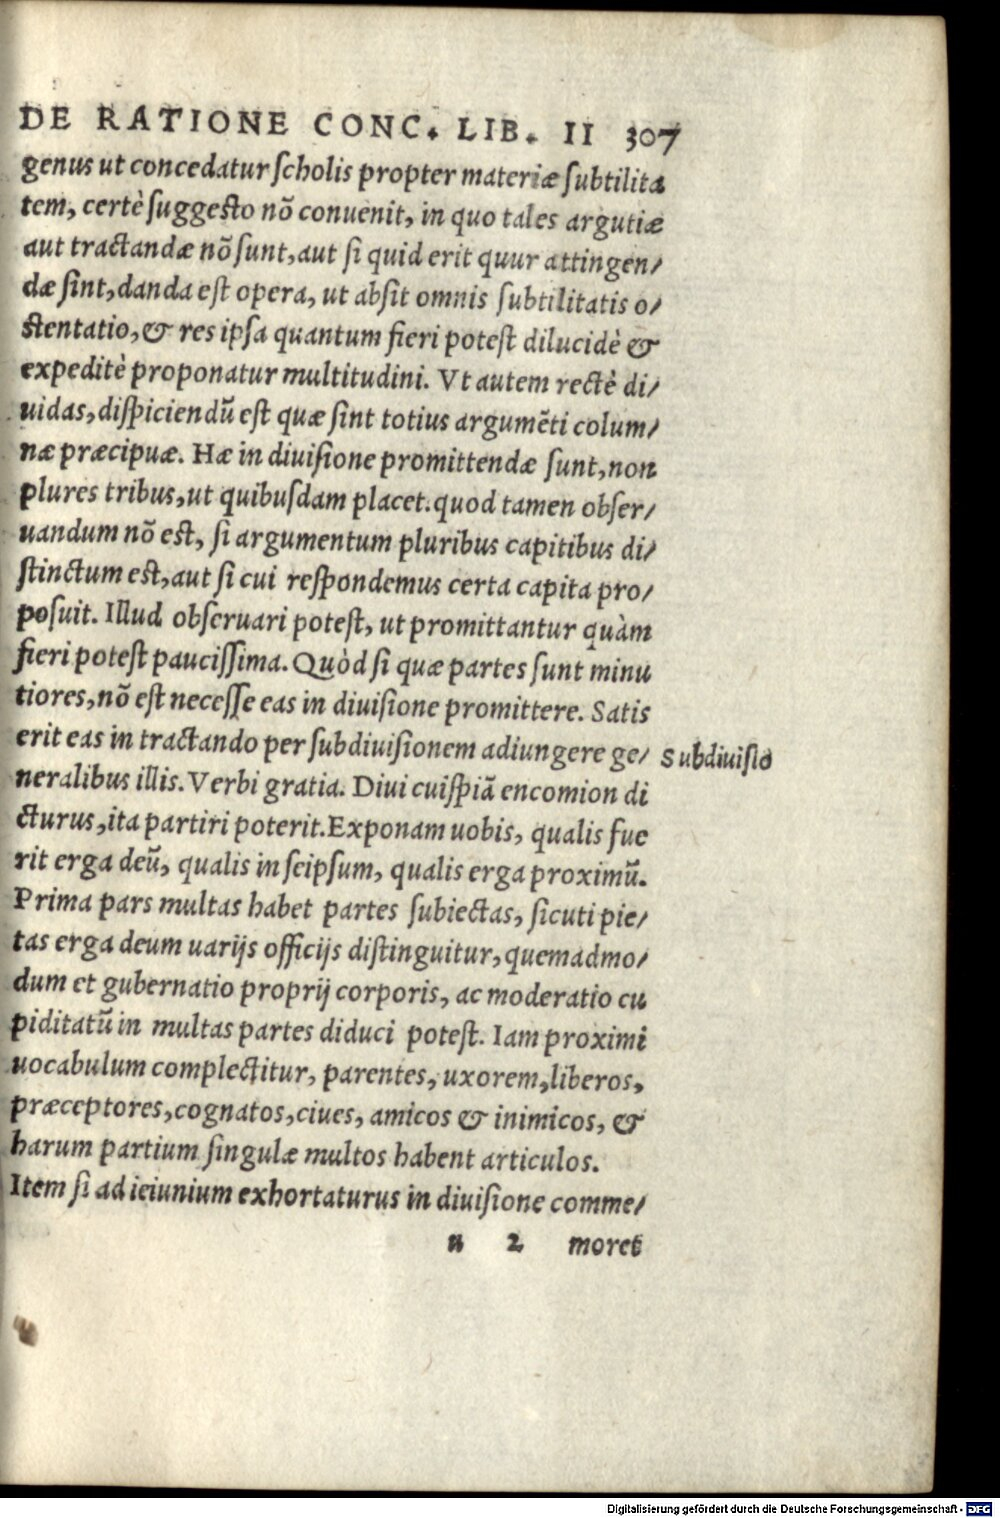 DE RATIONE CONC. LIB. II 307
genus ut concedatur ſcholis propter materiæ ſubtilita
tem, certè ſuggeſto nõ conuenit, in quo tales argutiæ
aut tractandæ nõ ſunt, aut ſi quid erit quur attingen/
dæ ſint, danda eſt opera, ut abſit omnis ſubtilitatis o/
ſtentatio, & res ipſa quantum fieri poteſt dilucidè &
expeditè proponatur multitudini. Vt autem rectè di/
uidas, diſpiciendũ eſt quæ ſint totius argumẽti colum/
næ præcipuæ. Hæ in diuiſione promittendæ ſunt, non
plures tribus, ut quibuſdam placet. quod tamen obſer/
uandum nõ eſt, ſi argumentum pluribus capitibus di/
ſtinctum eſt, aut ſi cui reſpondemus certa capita pro/
poſuit. Illud obſeruari poteſt, ut promittantur quàm
fieri poteſt pauciſſima. Quòd ſi quæ partes ſunt minu
tiores, nõ eſt neceſſe eas in diuiſione promittere. Satis
erit eas in tractando per ſubdiuiſionem adiungere ge/ Subdiuiſio
neralibus illis. Verbi gratia. Diui cuiſpiã encomion di
cturus, ita partiri poterit. Exponam uobis, qualis fue
rit erga deũ, qualis in ſeipſum, qualis erga proximũ.
Prima pars multas habet partes ſubiectas, ſicuti pie/
tas erga deum uarijs officijs diſtinguitur, quemadmo/
dum et gubernatio proprij corporis, ac moderatio cu
piditatũ in multas partes diduci poteſt. Iam proximi
uocabulum complectitur, parentes, uxorem, liberos,
præceptores, cognatos, ciues, amicos & inimicos, &
harum partium ſingulæ multos habent articulos.
Item ſi ad ieiunium exhortaturus in diuiſione comme/
n 2 moret
Digitalisierung gefördert durch die Deutsche Forschungsgemeinschaft - DFG